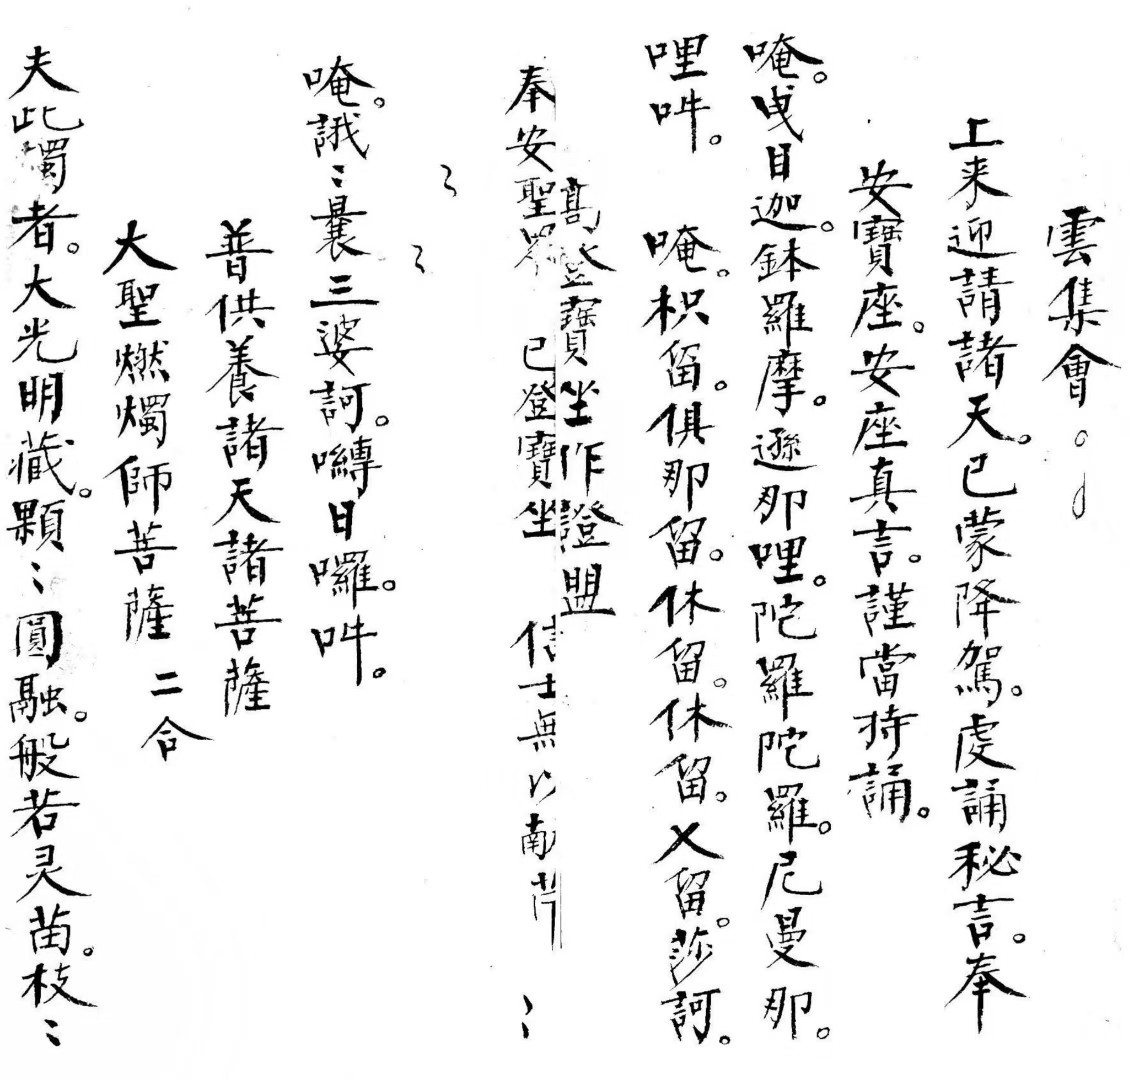 雲集會。
上来迎請諸天。已蒙降駕。虔誦秘言。奉
安寶座。安座真言。謹當持誦。
唵。曵日迦。鉢羅摩。遜那哩。陀羅陀羅。尼曼那。
哩吽。 唵。枳留。俱那留。休留。休留。乂留。莎訶。
髙登寶坐作證盟
奉安聖 已登寶坐 信士無以南
唵。誐〻曩三婆訶。嚩日囉。吽。
普供養諸天諸菩薩
大聖燃燭師菩薩 二合
夫此燭者。大光明藏。顆〻圓融。般若灵苗。枝〻